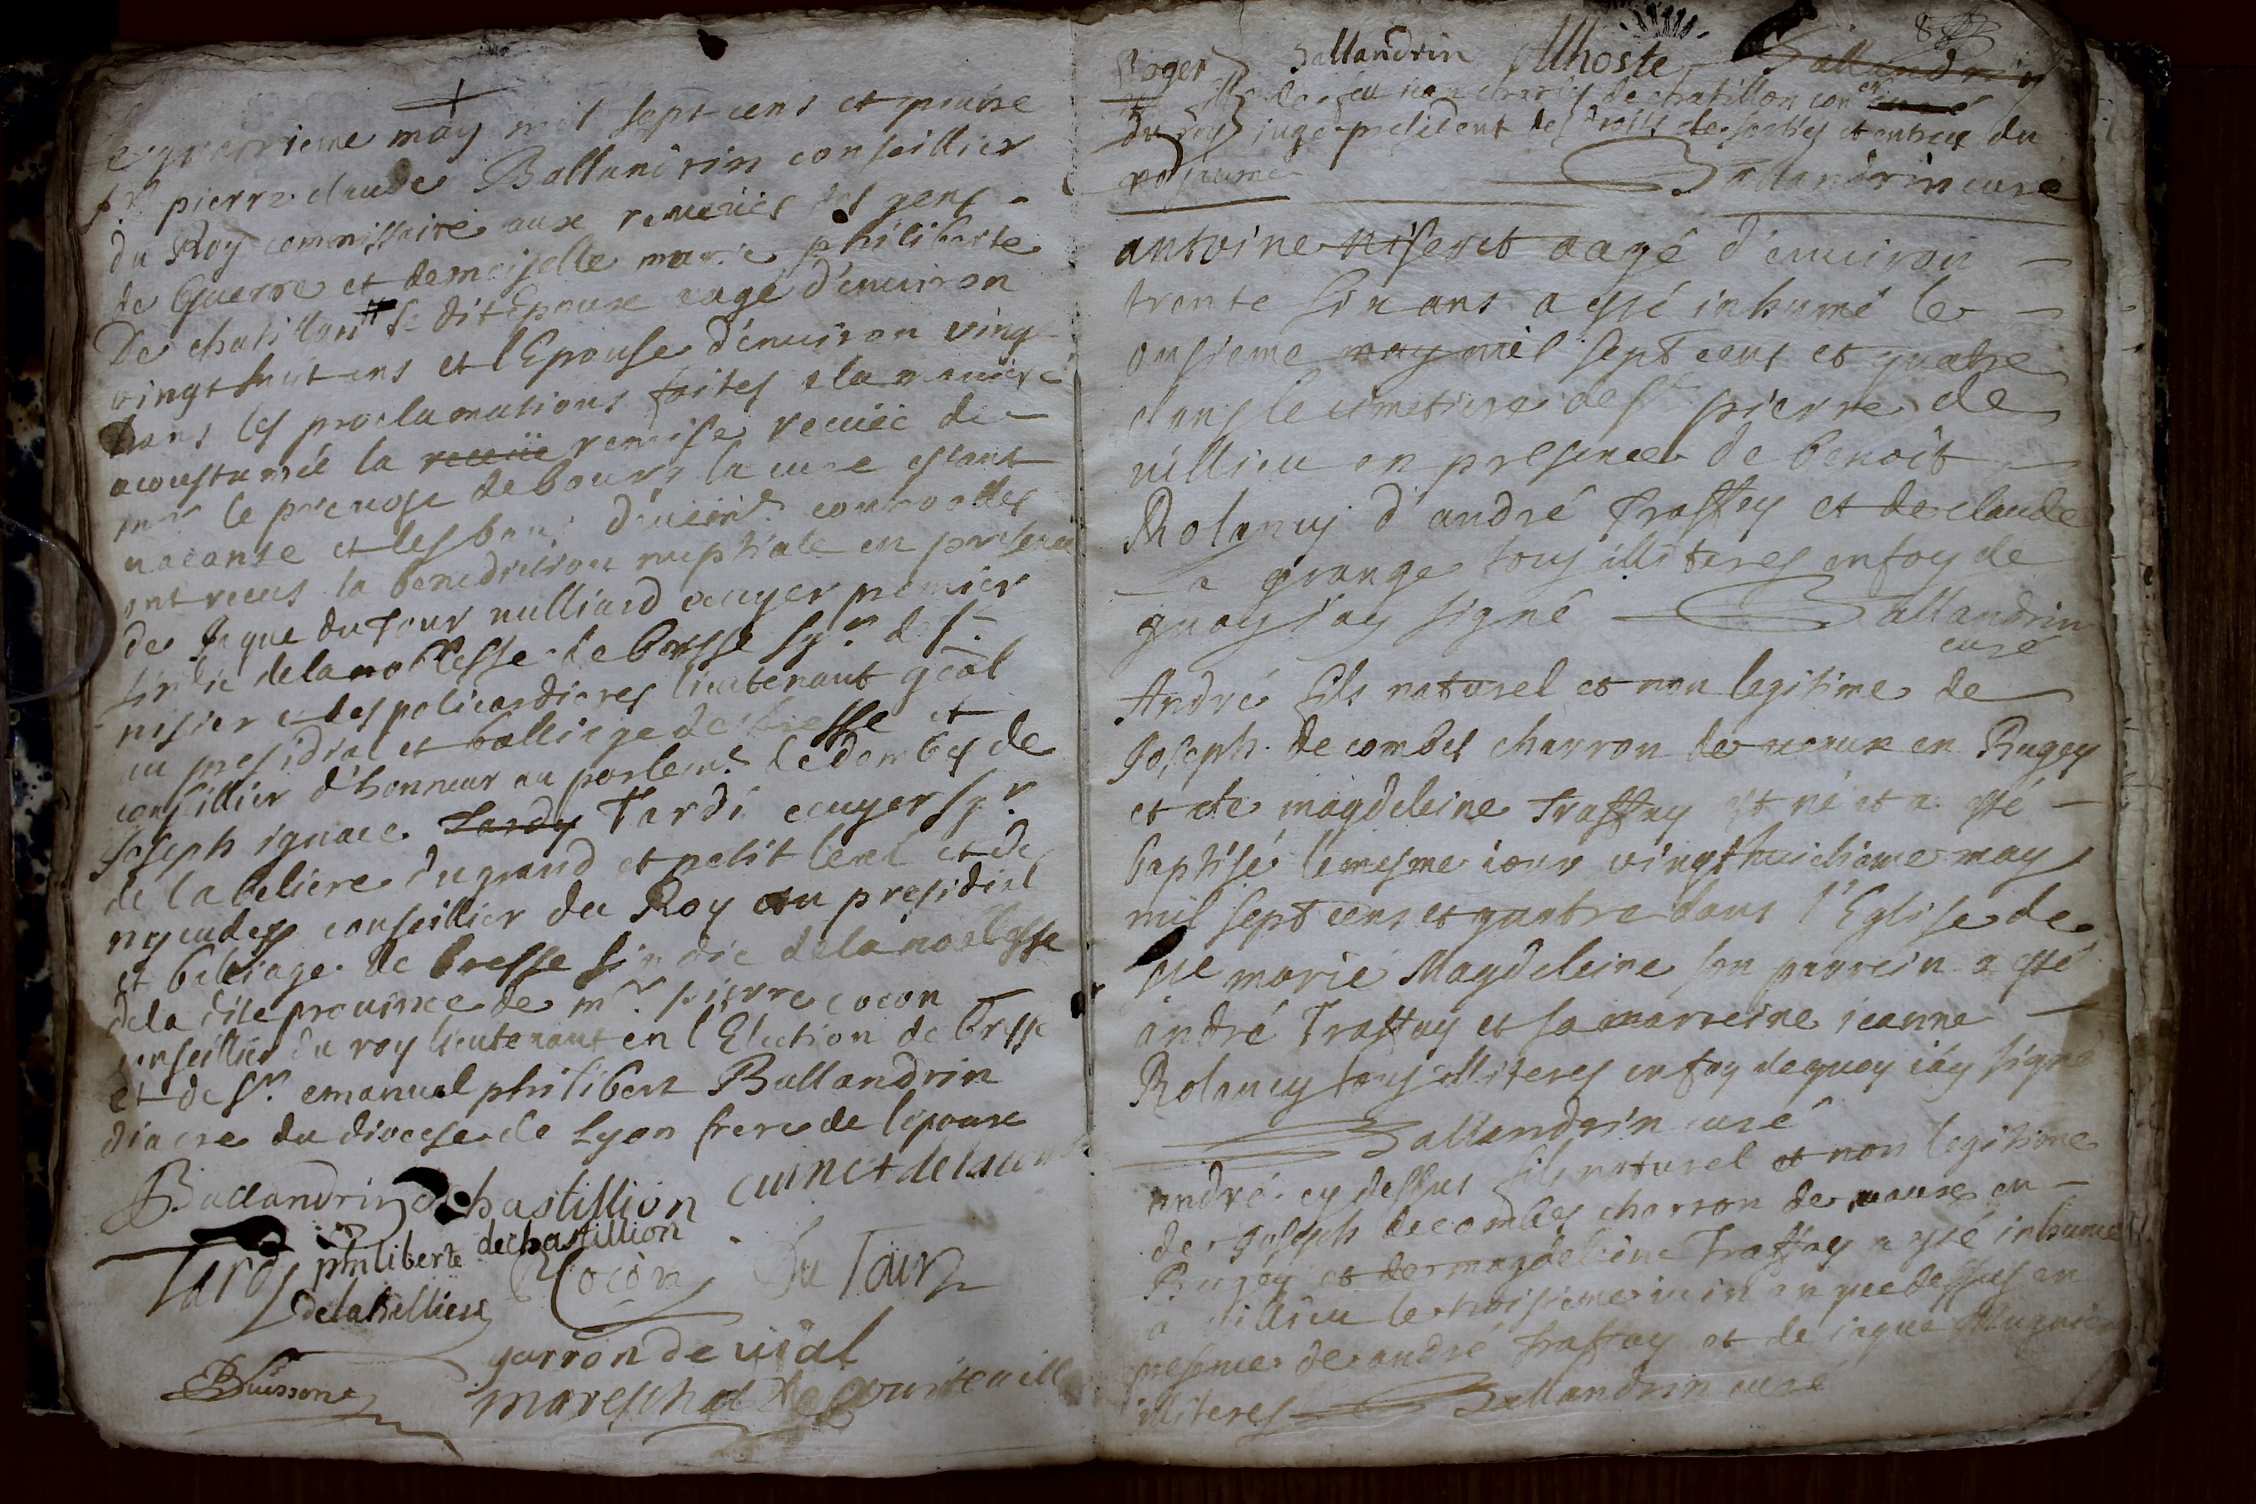 Le quatrieme may mil sept cens et quatre
sr pierre claude Ballandrin conseillier
du Roy commissaire aux reveües des gens
de Guerre et demoiselle marie philiberte
De chatillon # le dit Epoux eagé d'environ
vingt huit ans et l'Epouse d'environ vingt
ans les proclamations faites a la maniere
acoustumée la receüe remise receüe de
mr le prevost de bourg la cure estant
vacante et les bans controolles
ont receus la benediction nuptiale en presence
de Jaque du four vulliard ecuyer premier
sindic de la noblesse de bresse sgr de st
nisier et des policardieres lieutenant geal
au presidial et balliage de bresse et
conseillier d'honneur au parlemt de dombes de
Joseph ignace Tardy Tardi ecuyer sgr
de la beliere du grand et petit et de
conseillier du Roy au presidial
et balliage de bresse sindic de la noblesse
de la dite province de mr pierre cocon
conseillier du roy lieutenant en l'Election de bresse
et de sr. emanuel philibert Ballandrin
diacre du diocese de Lyon frere de l'epoux
Ballandrin dechastillion cuinet
philiberte dechastillion
Tardy Cocon Du Four
delabelliere
garron de
Buisson mareschal de
Roger Ballandrin Lhoste Ballandrin
# de feu de chatillon coner curé
du roy juge president des droits de sorties et entree du
royaume
Ballandrin curé
antoine eagé d'environ
trente six ans a esté inhumé le
onsieme may mil sept cens et quatre
dans le cimetiere de st pierre de
villieu en presence de benoit
Rolancy d'andré Traffay et de claude
la grange tous illiteres en foy de
quoy j'ay signé Ballandrin
curé
André fils naturel et non legitime de
Joseph decombes charron de vaux en Bugey
et de magdeleine Traffay est né et a esté
baptisé le mesme iour vingt huictiame may
mil sept cens et quatre dans l'Eglise de
ste marie Magdeleine son parrein a esté
andré Traffay et sa marreine jeanne
Rolancy tous illiteres en foy de quoy iáy signé
Ballandrin curé
andré cy dessus fils naturel et non legitime
de Joseph decombes charron de vaux en
Bugey et de magdeleine Traffay a esté inhumé
a villieu le troisieme iuin an que dessus en
presence de andré Traffay et de iaque Mugnier
illiteres Ballandrin curé